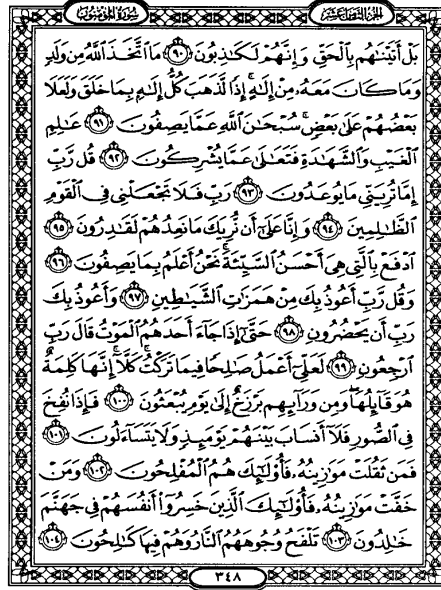 سُورَةُ المُؤْمِنُونَ
الجُزءُ الثَّامِنَ عَشَرَ
بَلْ أَتَيْنَٰهُم بِٱلْحَقِّ وَإِنَّهُمْ لَكَٰذِبُونَ ٩٠ مَا ٱتَّخَذَ ٱللَّهُ مِن وَلَدٍ
وَمَا كَانَ مَعَهُۥ مِنْ إِلَٰهٍ ۚ إِذًا لَّذَهَبَ كُلُّ إِلَٰهٍۭ بِمَا خَلَقَ وَلَعَلَا
بَعْضُهُمْ عَلَىٰ بَعْضٍ ۚ سُبْحَٰنَ ٱللَّهِ عَمَّا يَصِفُونَ ٩١ عَٰلِمِ
ٱلْغَيْبِ وَٱلشَّهَٰدَةِ فَتَعَٰلَىٰ عَمَّا يُشْرِكُونَ ٩٢ قُل رَّبِّ
إِمَّا تُرِيَنِّى مَا يُوعَدُونَ ٩٣ رَبِّ فَلَا تَجْعَلْنِى فِى ٱلْقَوْمِ
ٱلظَّٰلِمِينَ ٩٤ وَإِنَّا عَلَىٰٓ أَن نُّرِيَكَ مَا نَعِدُهُمْ لَقَٰدِرُونَ ٩٥
ٱدْفَعْ بِٱلَّتِى هِىَ أَحْسَنُ ٱلسَّيِّئَةَ ۚ نَحْنُ أَعْلَمُ بِمَا يَصِفُونَ ٩٦
وَقُل رَّبِّ أَعُوذُ بِكَ مِنْ هَمَزَٰتِ ٱلشَّيَٰطِينِ ٩٧ وَأَعُوذُ بِكَ
رَبِّ أَن يَحْضُرُونِ ٩٨ حَتَّىٰٓ إِذَا جَآءَ أَحَدَهُمُ ٱلْمَوْتُ قَالَ رَبِّ
ٱرْجِعُونِ ٩٩ لَعَلِّىٓ أَعْمَلُ صَٰلِحًا فِيمَا تَرَكْتُ ۚ كَلَّآ ۚ إِنَّهَا كَلِمَةٌ
هُوَ قَآئِلُهَا ۖ وَمِن وَرَآئِهِم بَرْزَخٌ إِلَىٰ يَوْمِ يُبْعَثُونَ ١٠٠ فَإِذَا نُفِخَ
فِى ٱلصُّورِ فَلَآ أَنسَابَ بَيْنَهُمْ يَوْمَئِذٍ وَلَا يَتَسَآءَلُونَ ١٠١
فَمَن ثَقُلَتْ مَوَٰزِينُهُۥ فَأُو۟لَٰٓئِكَ هُمُ ٱلْمُفْلِحُونَ ١٠٢ وَمَنْ
خَفَّتْ مَوَٰزِينُهُۥ فَأُو۟لَٰٓئِكَ ٱلَّذِينَ خَسِرُوٓا۟ أَنفُسَهُمْ فِى جَهَنَّمَ
خَٰلِدُونَ ١٠٣ تَلْفَحُ وُجُوهَهُمُ ٱلنَّارُ وَهُمْ فِيهَا كَٰلِحُونَ ١٠٤
٣٤٨